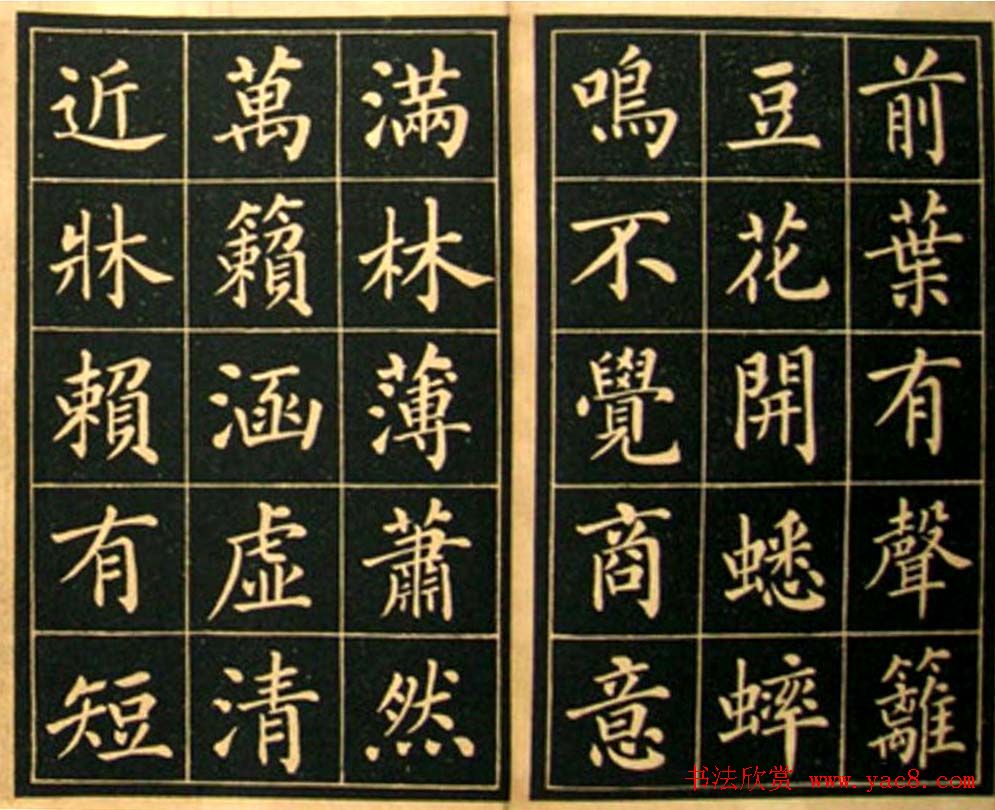 前葉有聲籬
豆花開蟋蟀
鳴不覺商意
滿林薄蕭然
萬籟涵虛清
近牀賴有短
书法欣赏 www.yac8.com